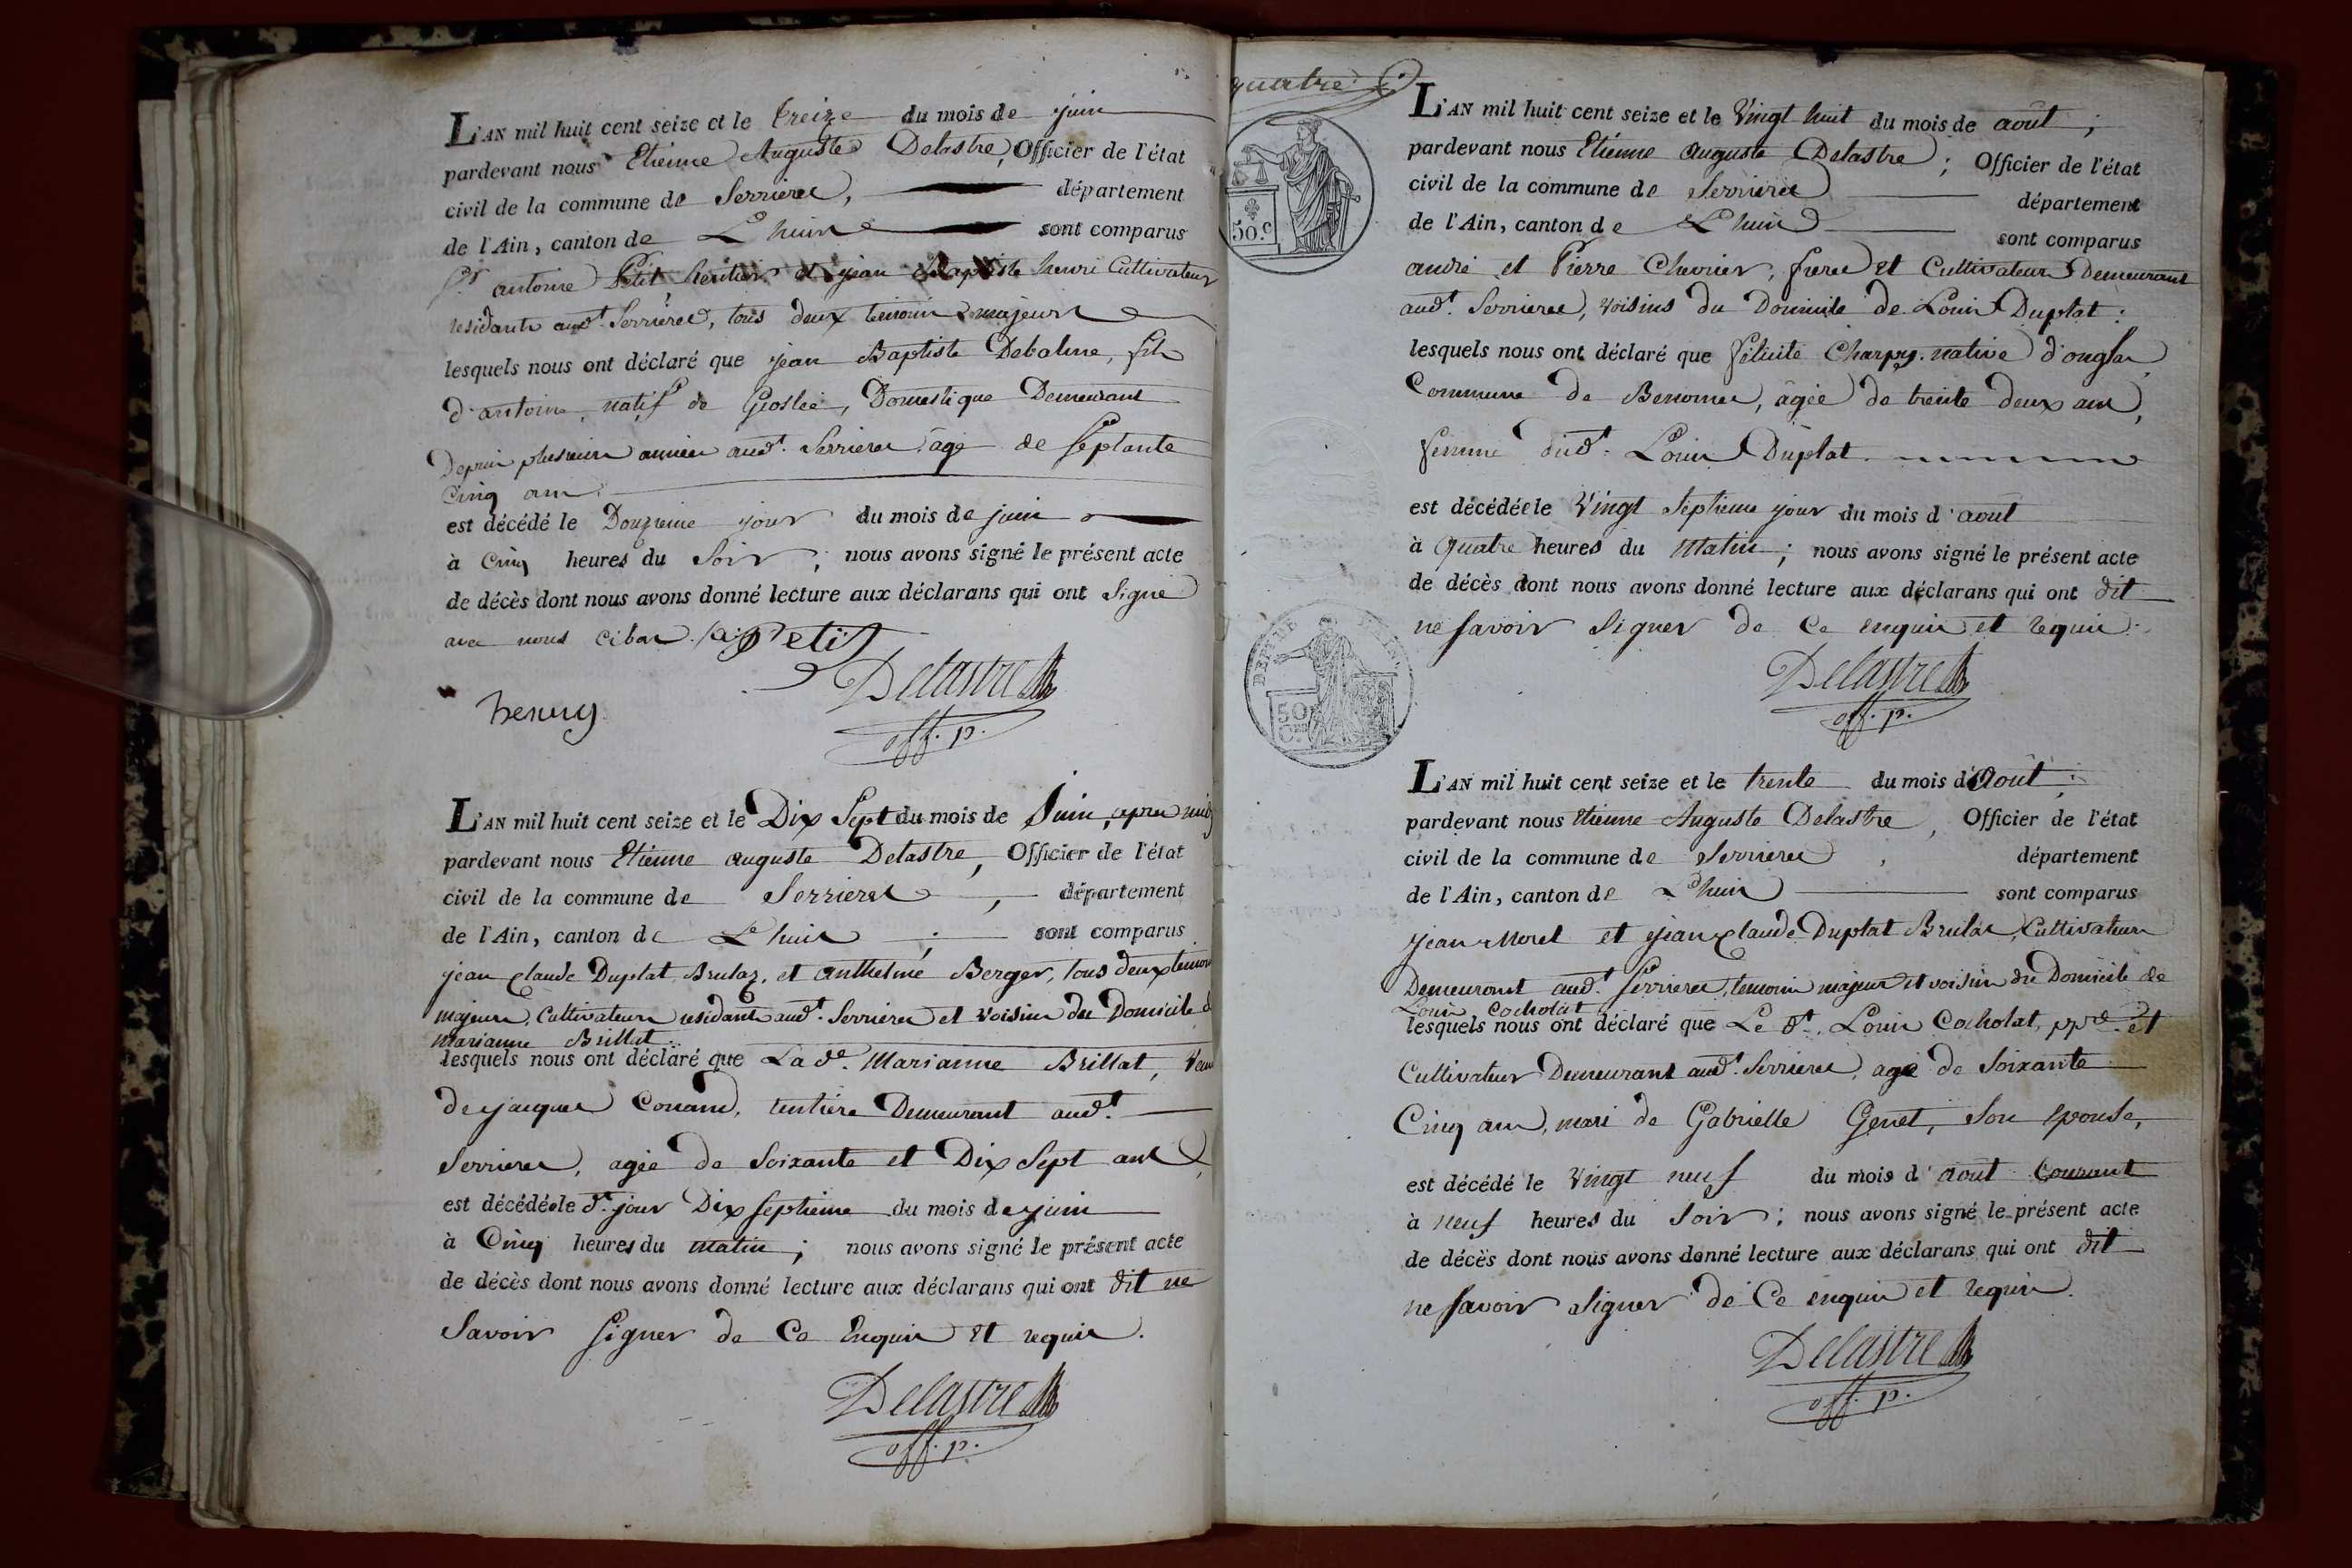 L'AN mil huit cent seize et le treize du mois de juin
pardevant nous Etienne Auguste Delastre, Officier de l'état
civil de la commune de Serrieres, département
de l'Ain, canton de L'huis sont comparus
Sr antoine Petit Rentier et jean Baptiste henri Cultivateur
residants audt. Serrieres, tous deux temoins majeurs
lesquels nous ont déclaré que jean Baptiste Debalme, fils
d'antoine, natif de Groslée, Domestique Demeurant
Depuis plusieurs années audt. Serrieres âgé de septante
Cinq ans
est décédé le Douzieme jour du mois de juin
à Cinq heures du Soir; nous avons signé le présent acte
de décès dont nous avons donné lecture aux déclarans qui ont Signé
avec nous cibas. Petit
Delastre
off. p.
henry
L'AN mil huit cent seize et le Dix Sept du mois de Juin, apres midy
pardevant nous Etienne auguste Delastre, Officier de l'état
civil de la commune de Serrieres, département
de l'Ain, canton de L'huis; sont comparus
jean Claude Duplat Brulaz, et anthelme Berger, tous deux temoins
majeurs, Cultivateurs residants audt. Serrieres et voisins du Domicile de
Marianne Brillat
lesquels nous ont déclaré que La de. Marianne Brillat, Veuve
de jacques Conand, rentiere Demeurant audt.
Serrieres, agée de Soixante et Dix Sept ans,
est décédée le dt. jour Dix septieme du mois de juin
à Cinq heures du matin; nous avons signé le présent acte
de décès dont nous avons donné lecture aux déclarans qui ont dit ne
Savoir signer de Ce Enquis et requis.
Delastre
off. p.
quatre
50.c
L'AN mil huit cent seize et le Vingt huit du mois de août;
pardevant nous Etienne auguste Delastre; Officier de l'état
civil de la commune de Serrieres département
de l'Ain, canton de L'huis sont comparus
andré et Pierre Chevrier, freres et Cultivateurs Demeurant
audt. Serrieres, voisins du Domicile de Louis Duplat:
lesquels nous ont déclaré que félicité Charpy, native d'onglas
Commune de Benonces, âgée de trente deux ans,
femme dudt. Louis Duplat
est décédée le Vingt Septieme jour du mois d'aout
à Quatre heures du Matin; nous avons signé le présent acte
de décès dont nous avons donné lecture aux déclarans qui ont dit
ne savoir signer de Ce enquis et requis.
Delastre
off. p.
50
L'AN mil huit cent seize et le trente du mois d'Août,
pardevant nous Etienne Auguste Delastre, Officier de l'état
civil de la commune de Serrieres, département
de l'Ain, canton de L'huis sont comparus
Jean Morel et jean Claude Duplat Brulas, Cultivateurs
Demeurant audt. Serrieres, temoins majeurs et voisins du Domicile de
Louis Cocholat
lesquels nous ont déclaré que Le dt. Louis Cocholat, ppre. et
Cultivateur Demeurant audt. Serrieres, agé de Soixante
Cinq ans, mari de Gabrielle Genet, Son epouse,
est décédé le Vingt neuf du mois d'aout Courant
à neuf heures du Soir; nous avons signé le présent acte
de décès dont nous avons donné lecture aux déclarans qui ont dit
ne savoir signer de Ce enquis et requis.
Delastre
off. p.